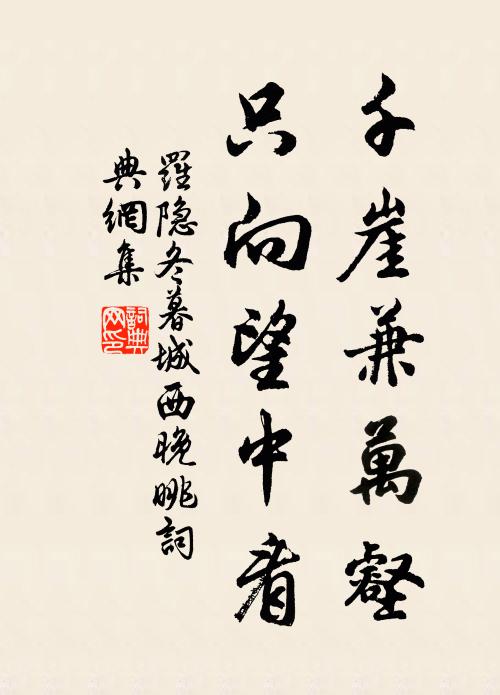 千崖兼萬壑
只向望中看
羅隐冬暮城西晚眺詞
典網集
詞典网印